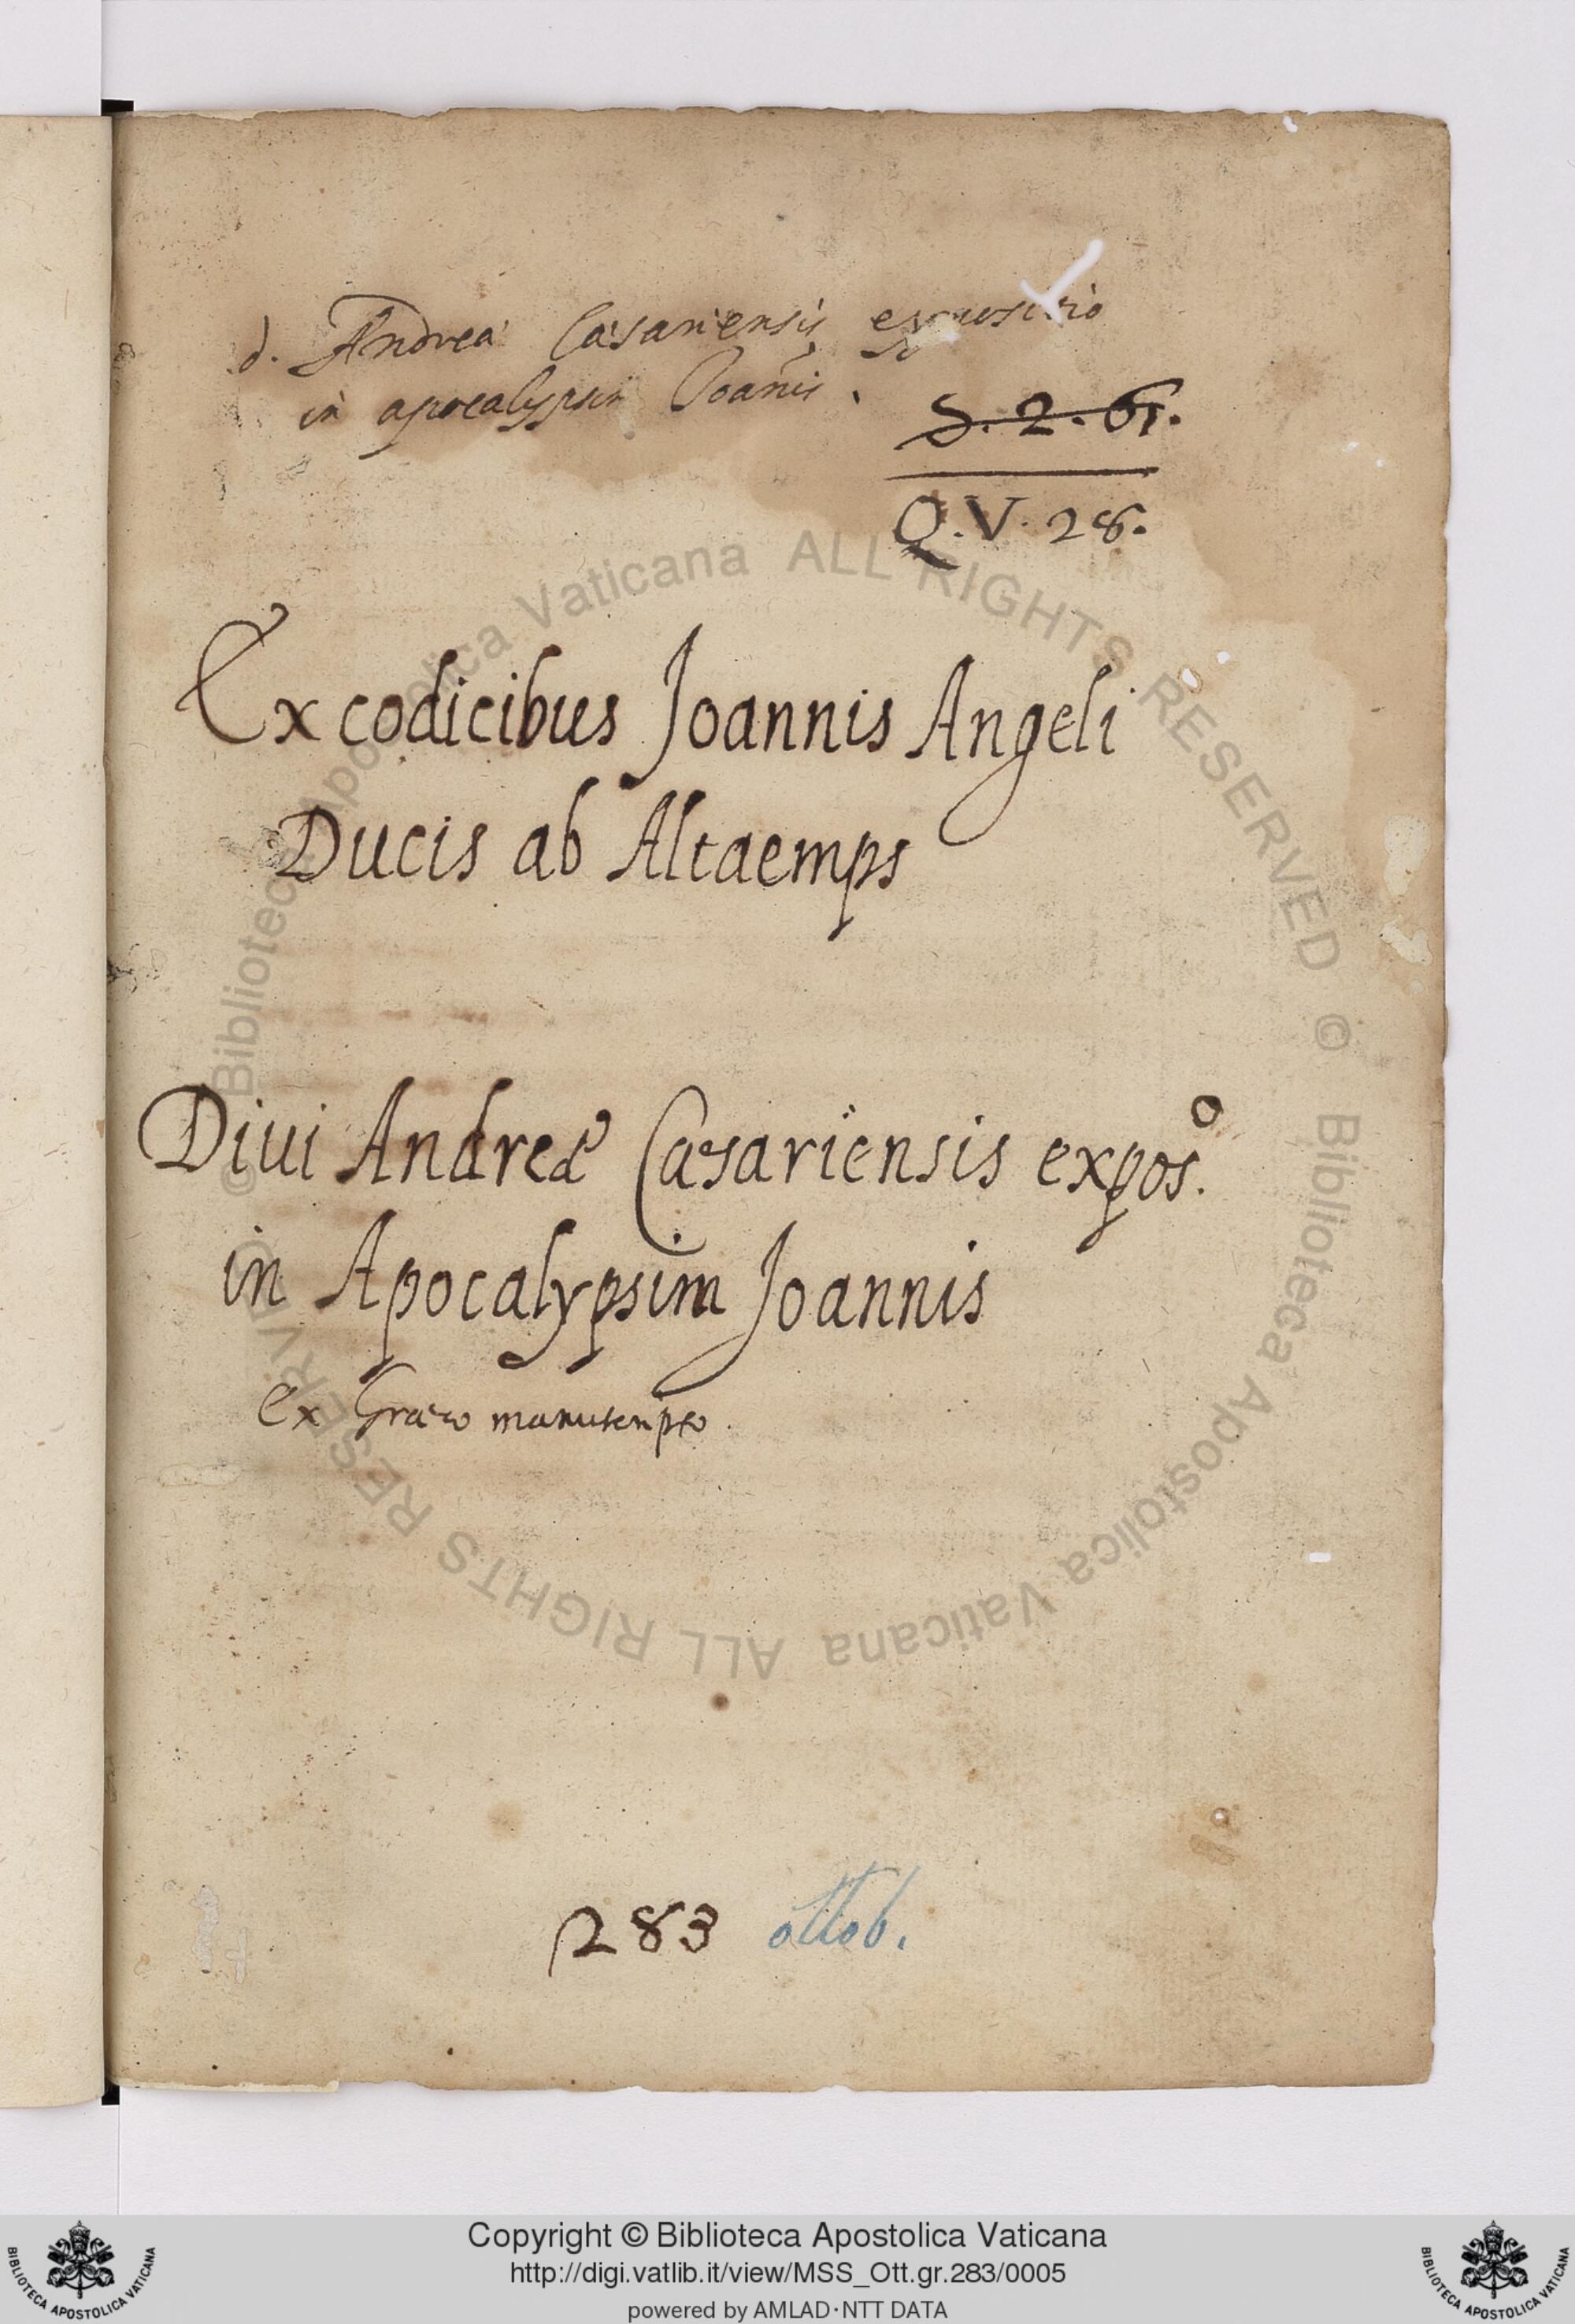 d. Andreæ Cæsariensis expositio
in apocalypsin Joañis.
S. 2. 61.
Q. V. 28.
Ex codicibus Joannis Angeli
Ducis ab Altaemps
Diui Andreę Cæsariensis expos.º
in Apocalypsim Joannis
ex Græco manuscripto.
283 ottob.
© Biblioteca Apostolica Vaticana ALL RIGHTS RESERVED © Biblioteca Apostolica Vaticana ALL RIGHTS RESERVED
Copyright © Biblioteca Apostolica Vaticana
http://digi.vatlib.it/view/MSS_Ott.gr.283/0005
powered by AMLAD·NTT DATA
BIBLIOTECA APOSTOLICA VATICANA
BIBLIOTECA APOSTOLICA VATICANA